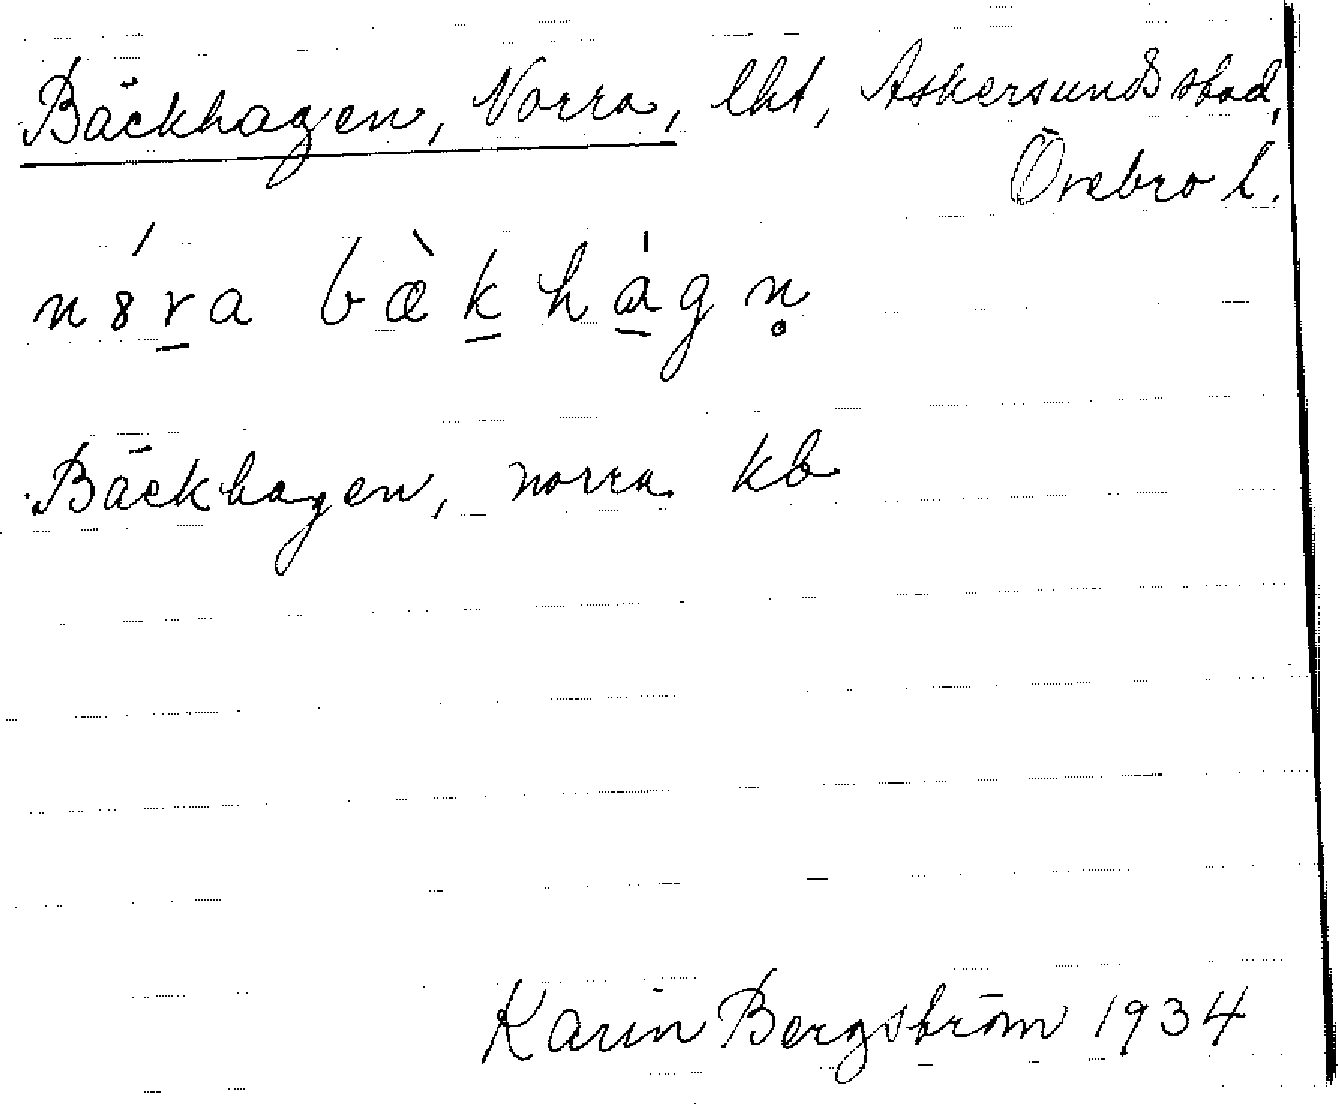 Bäckhagen, Norra, lht, Askersunds stad,
Örebro l.
n8́r̲a bæ̀k̲há̲gn̥
Bäckhagen, norra kb
Karin Bergström 1934